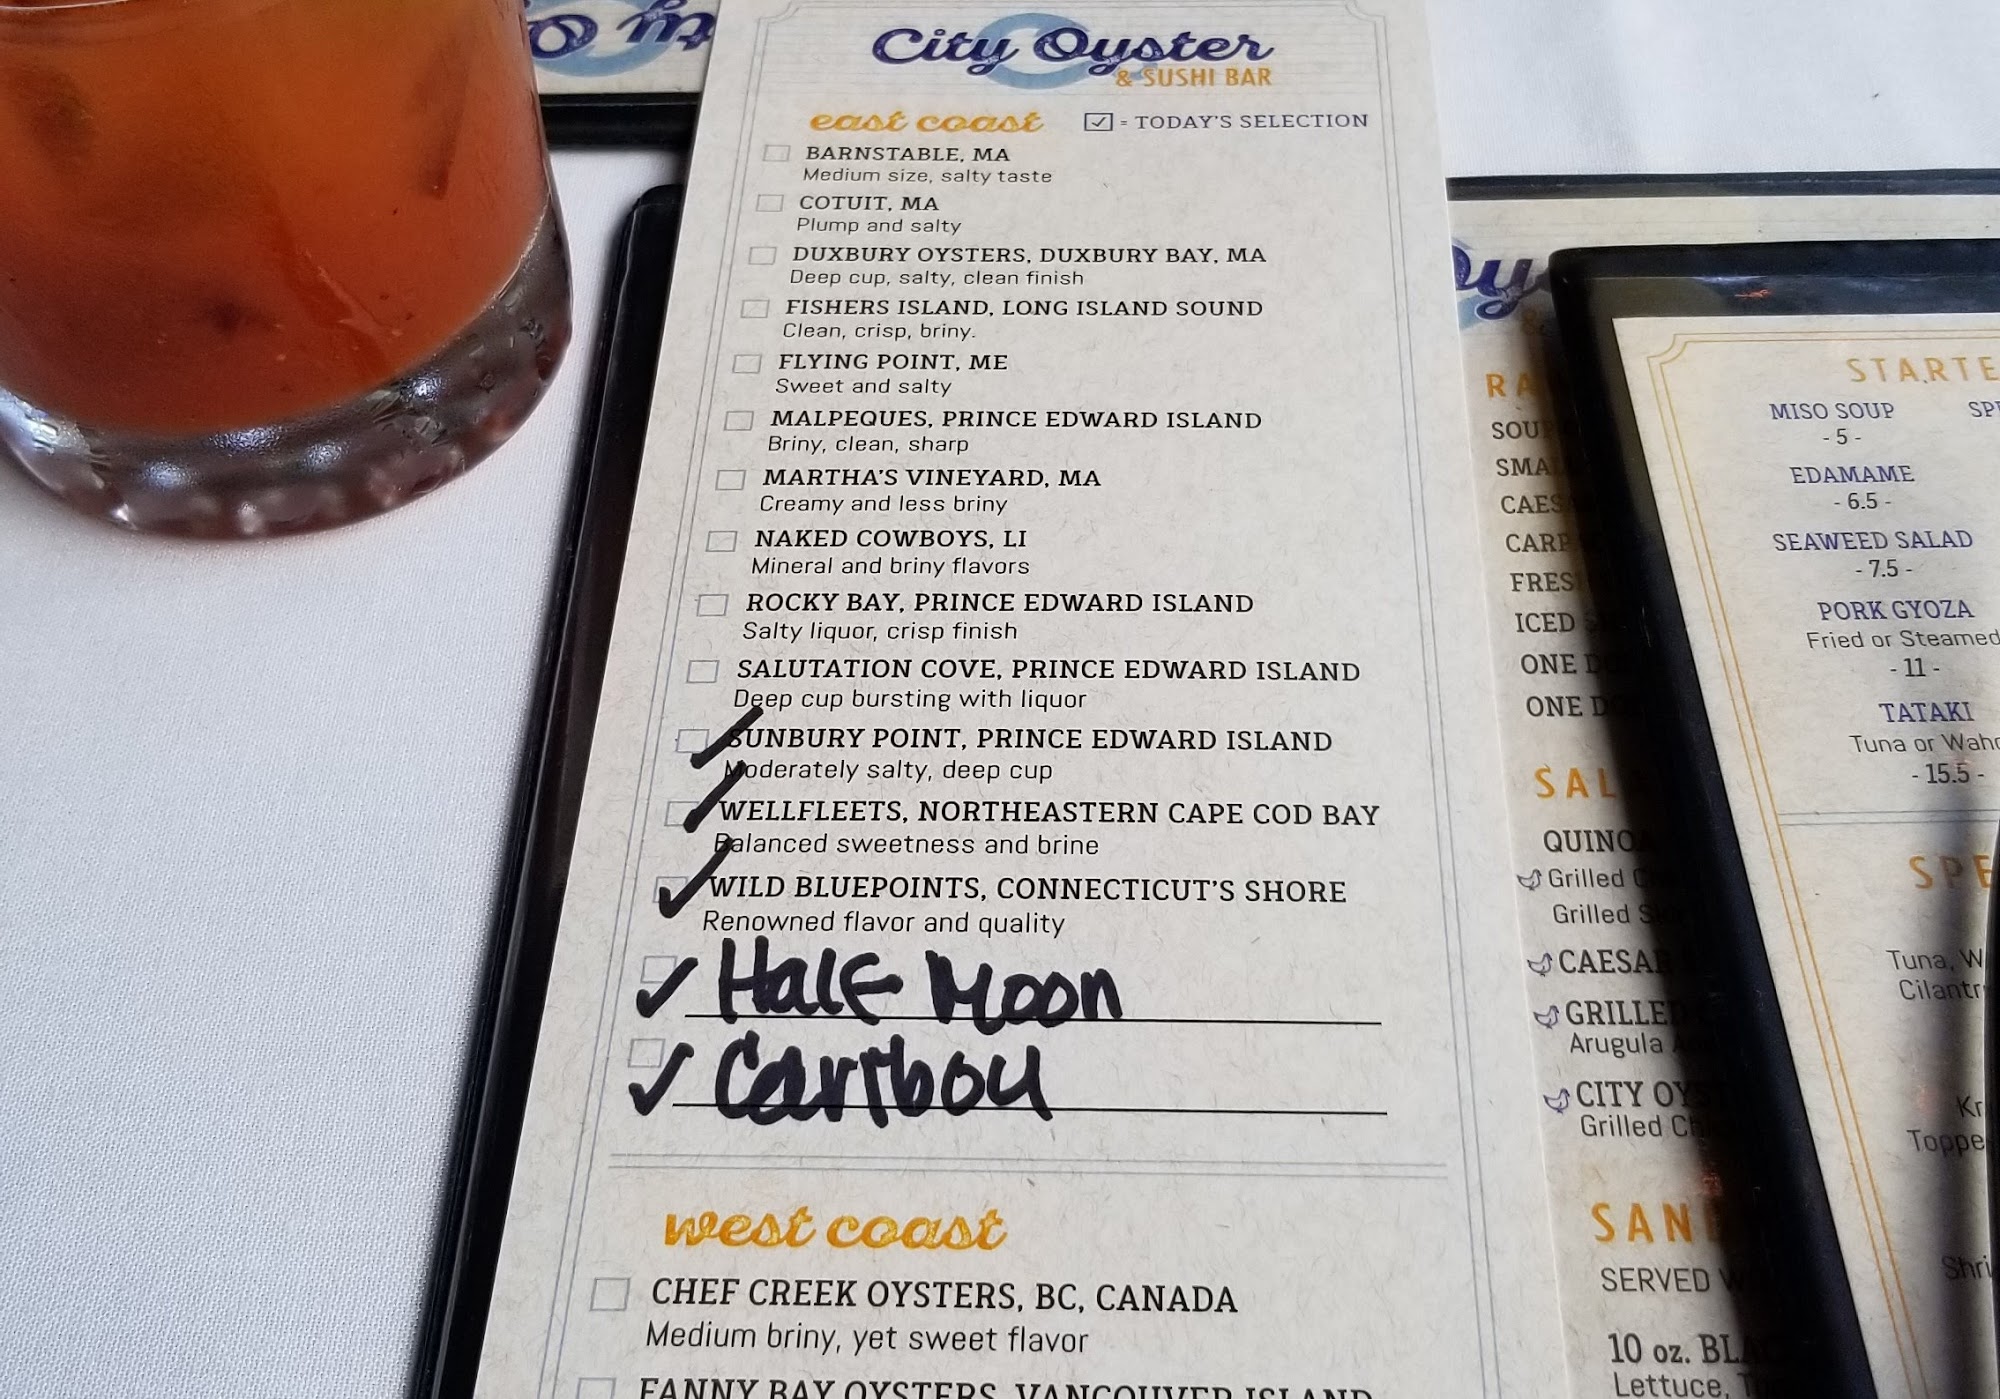 City Oyster
& SUSHI BAR
east coast
= TODAY'S SELECTION
BARNSTABLE, MA
Medium size, salty taste
COTUIT, MA
Plump and salty
DUXBURY OYSTERS, DUXBURY BAY, MA
Deep cup, salty, clean finish
FISHERS ISLAND, LONG ISLAND SOUND
Clean, crisp, briny.
FLYING POINT, ME
Sweet and salty
MALPEQUES, PRINCE EDWARD ISLAND
Briny, clean, sharp
MARTHA'S VINEYARD, MA
Creamy and less briny
NAKED COWBOYS, LI
Mineral and briny flavors
ROCKY BAY, PRINCE EDWARD ISLAND
Salty liquor, crisp finish
SALUTATION COVE, PRINCE EDWARD ISLAND
Deep cup bursting with liquor
SUNBURY POINT, PRINCE EDWARD ISLAND
Moderately salty, deep cup
WELLFLEETS, NORTHEASTERN CAPE COD BAY
Balanced sweetness and brine
WILD BLUEPOINTS, CONNECTICUT'S SHORE
Renowned flavor and quality
Half Moon
Caribou
west coast
CHEF CREEK OYSTERS, BC, CANADA
Medium briny, yet sweet flavor
FANNY BAY OYSTERS, VANCOUVER ISLAND
SOUP
ICED
ONE
ONE
QUINOA
Grilled
Grilled
CAESAR
GRILLED
Arugula
CITY OYSTER
Grilled
SERVED
10 oz.
Lettuce,
MISO SOUP
- 5 -
EDAMAME
- 6.5 -
SEAWEED SALAD
- 7.5 -
PORK GYOZA
Fried or Steamed
- 11 -
TATAKI
Tuna or
- 15.5 -
Tuna,